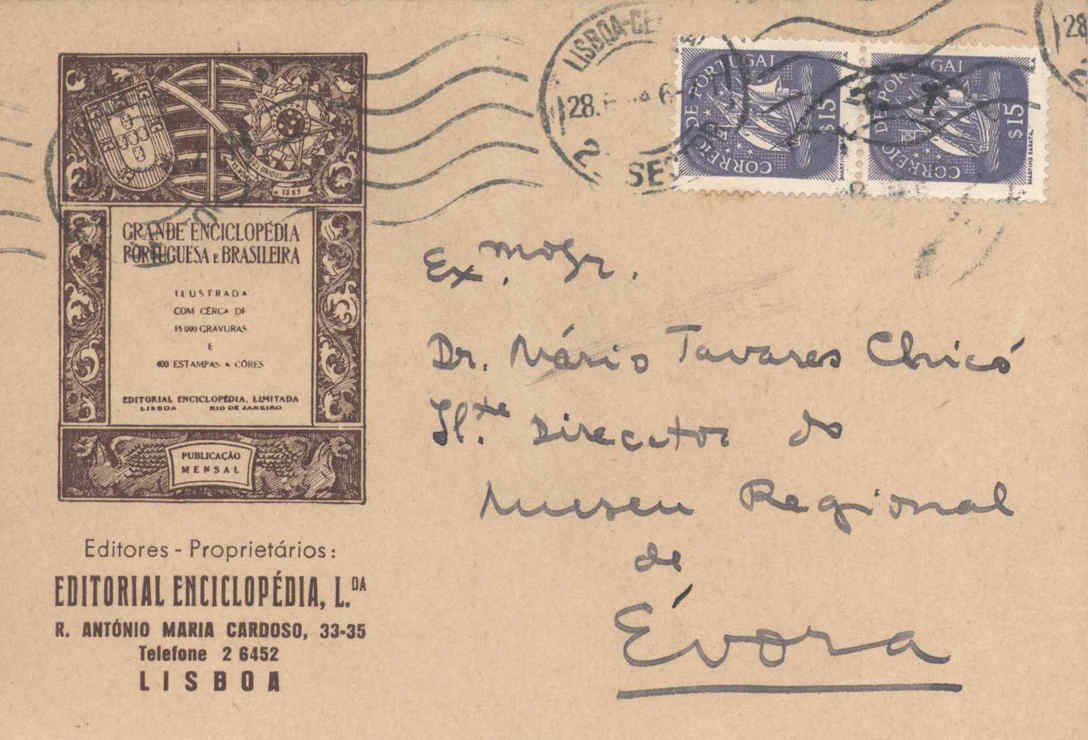 LISBOA-CE
28.
2
28
2
CORREIO DE PORTUGAL
$15
MARTINS BARATA.
CORREIO DE PORTUGAL
$15
MARTINS BARATA.
GRANDE ENCICLOPÉDIA
PORTUGUESA E BRASILEIRA
ILUSTRADA
COM CÊRCA DE
15.000 GRAVURAS
E
400 ESTAMPAS A CÔRES
EDITORIAL ENCICLOPÉDIA, LIMITADA
LISBOA RIO DE JANEIRO
PUBLICAÇÃO
MENSAL
Editores - Proprietários:
EDITORIAL ENCICLOPÉDIA, L.DA
R. ANTÓNIO MARIA CARDOSO, 33-35
Telefone 2 6452
LISBOA
Ex.mo Sr.
Dr. Mário Tavares Chicó
Il.te Director do
Museu Regional
de
Évora